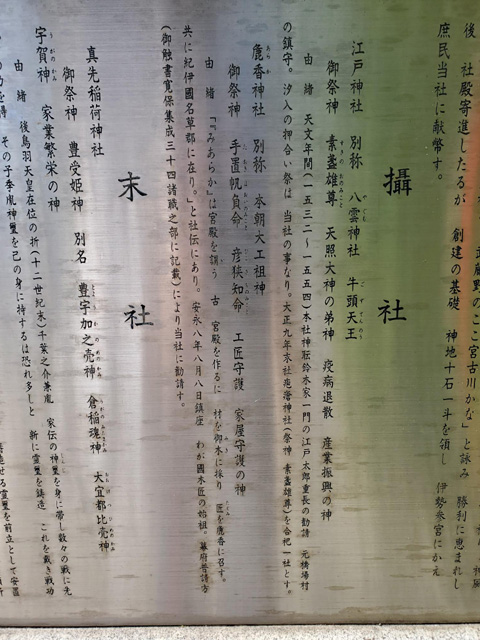 武蔵野のここ宮古川かな」と詠み 勝利に恵まれし
後 社殿寄進したるが 創建の基礎 神地十石一斗を領し 伊勢参宮にかえ
庶民当社に献幣す。
攝社
江戸神社 別称 八雲神社 牛頭天王
御祭神 素盞雄尊 天照大神の弟神 疫病退散 産業振興の神
由緒 天文年間(一五三二~一五五四)本社神職鈴木家一門の江戸太郎重長の勧請 元橋場村
の鎮守。汐入の押合い祭は 当社の事なり。大正九年末社疱瘡神社(祭神 素盞雄尊)を合祀一社とす。
麁香神社 別称 本朝大工祖神
御祭神 手置帆負命 彦狭知命 工匠守護 家屋守護の神
由緒 「『みあらか』は宮殿を謂う 古 宮殿を作るに 材を御木に採り 匠を麁香に召す。
共に紀伊國名草郡に在り。」と社伝にあり。安永八年八月八日鎮座 わが國木匠の始祖。幕府普請方
(御触書寛保集成三十四諸職之部に記載)により当社に勧請す。
末社
真先稲荷神社
御祭神 豊受姫神 別名 豊宇加之売神 倉稲魂神 大宜都比売神
宇賀神 家業繁栄の神
由緒 後鳥羽天皇在位の折(十二世紀末)千葉之介兼胤 家伝の神璽を身に帯し数々の戦に先
その子孝胤神璽を己の身に持するは恐れ多しと 新に霊璽を鋳造 これを戴き戦功
霊璽を前立として安置